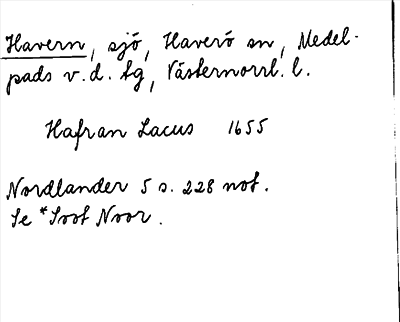 Havern, sjö, Haverö sn, Medel-
pads v.d. tg, Västernorrl. l.
Hafran Lacus 1655
Nordlander 5 s. 228 not.
Se *Svot Noor.